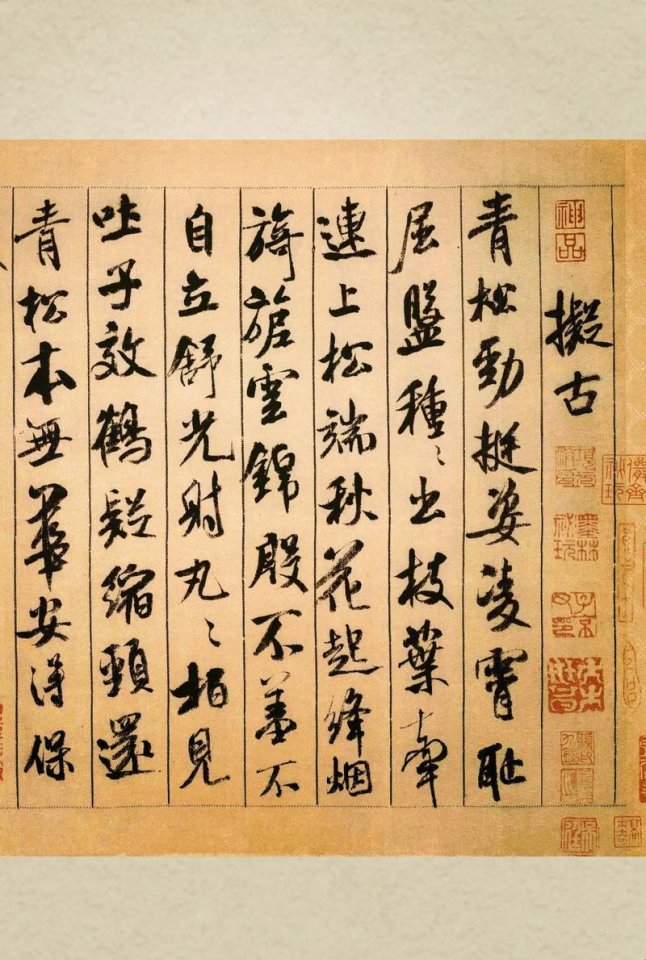 神品
擬古
青松勁挺姿凌霄恥
屈盤種〻出枝葉牽
連上松端秋花起絳烟
旖旎雲錦殷不羞不
自立舒光射丸〻柏見
吐子效鶴疑縮頸還
青松本無華安得保